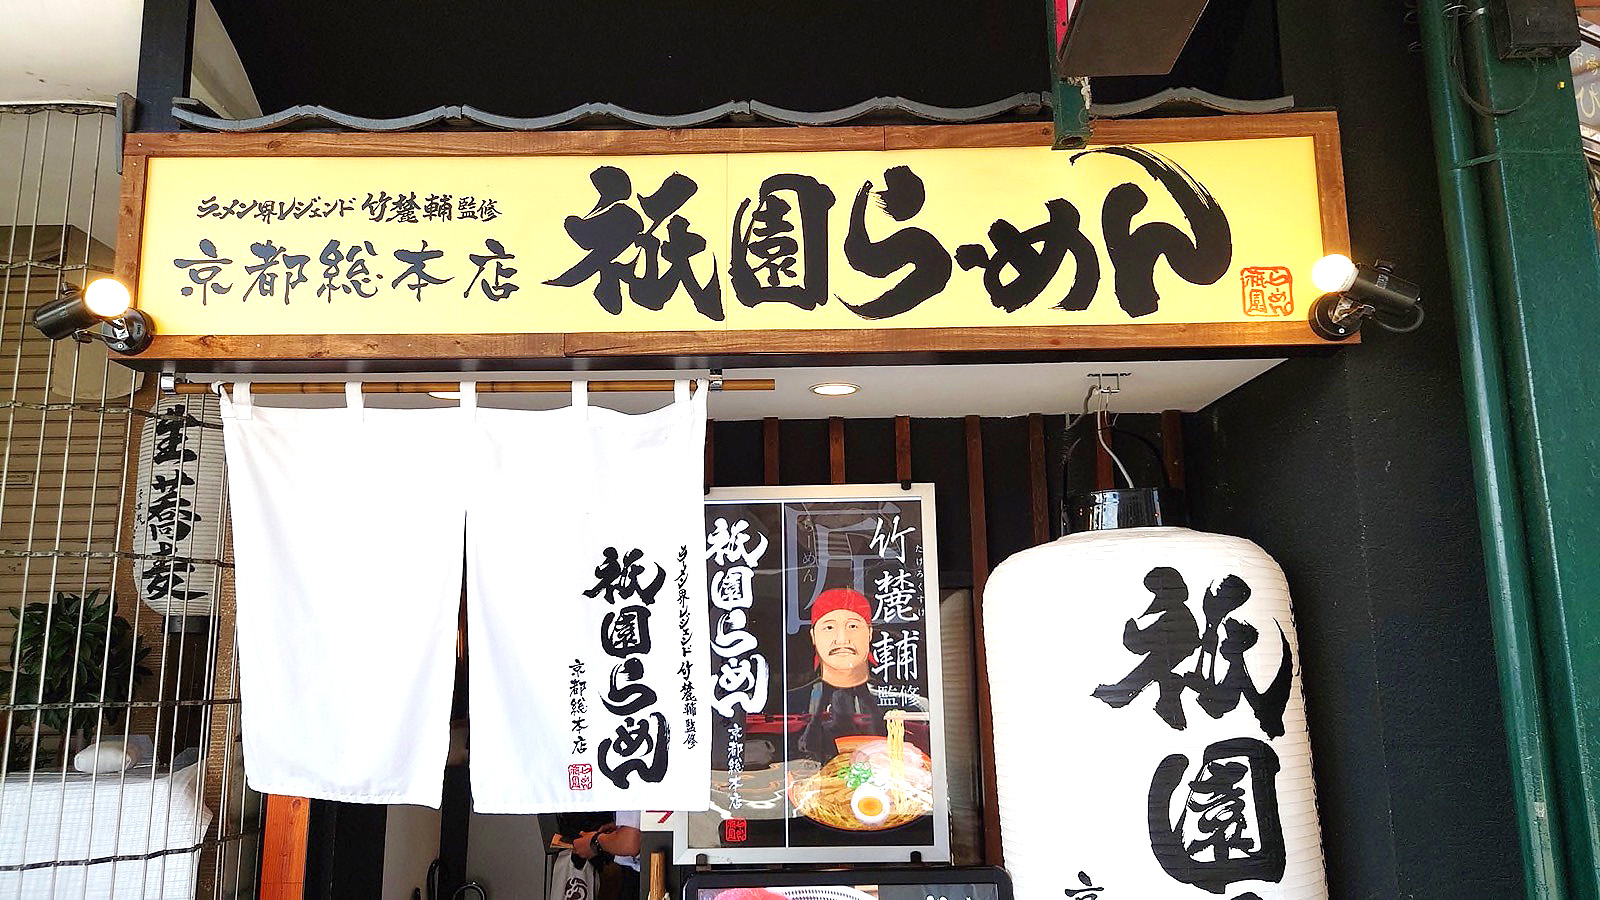 ラーメン界レジェンド 竹麓輔 監修
京都総本店
祇園らーめん
らーめん祇園
生蕎麦
ラーメン界レジェンド 竹麓輔 監修
祇園らーめん
京都総本店
らーめん祇園
祇園らーめん
京都総本店
匠
らーめん
竹麓輔
たけろくすけ
監修
祇園
京